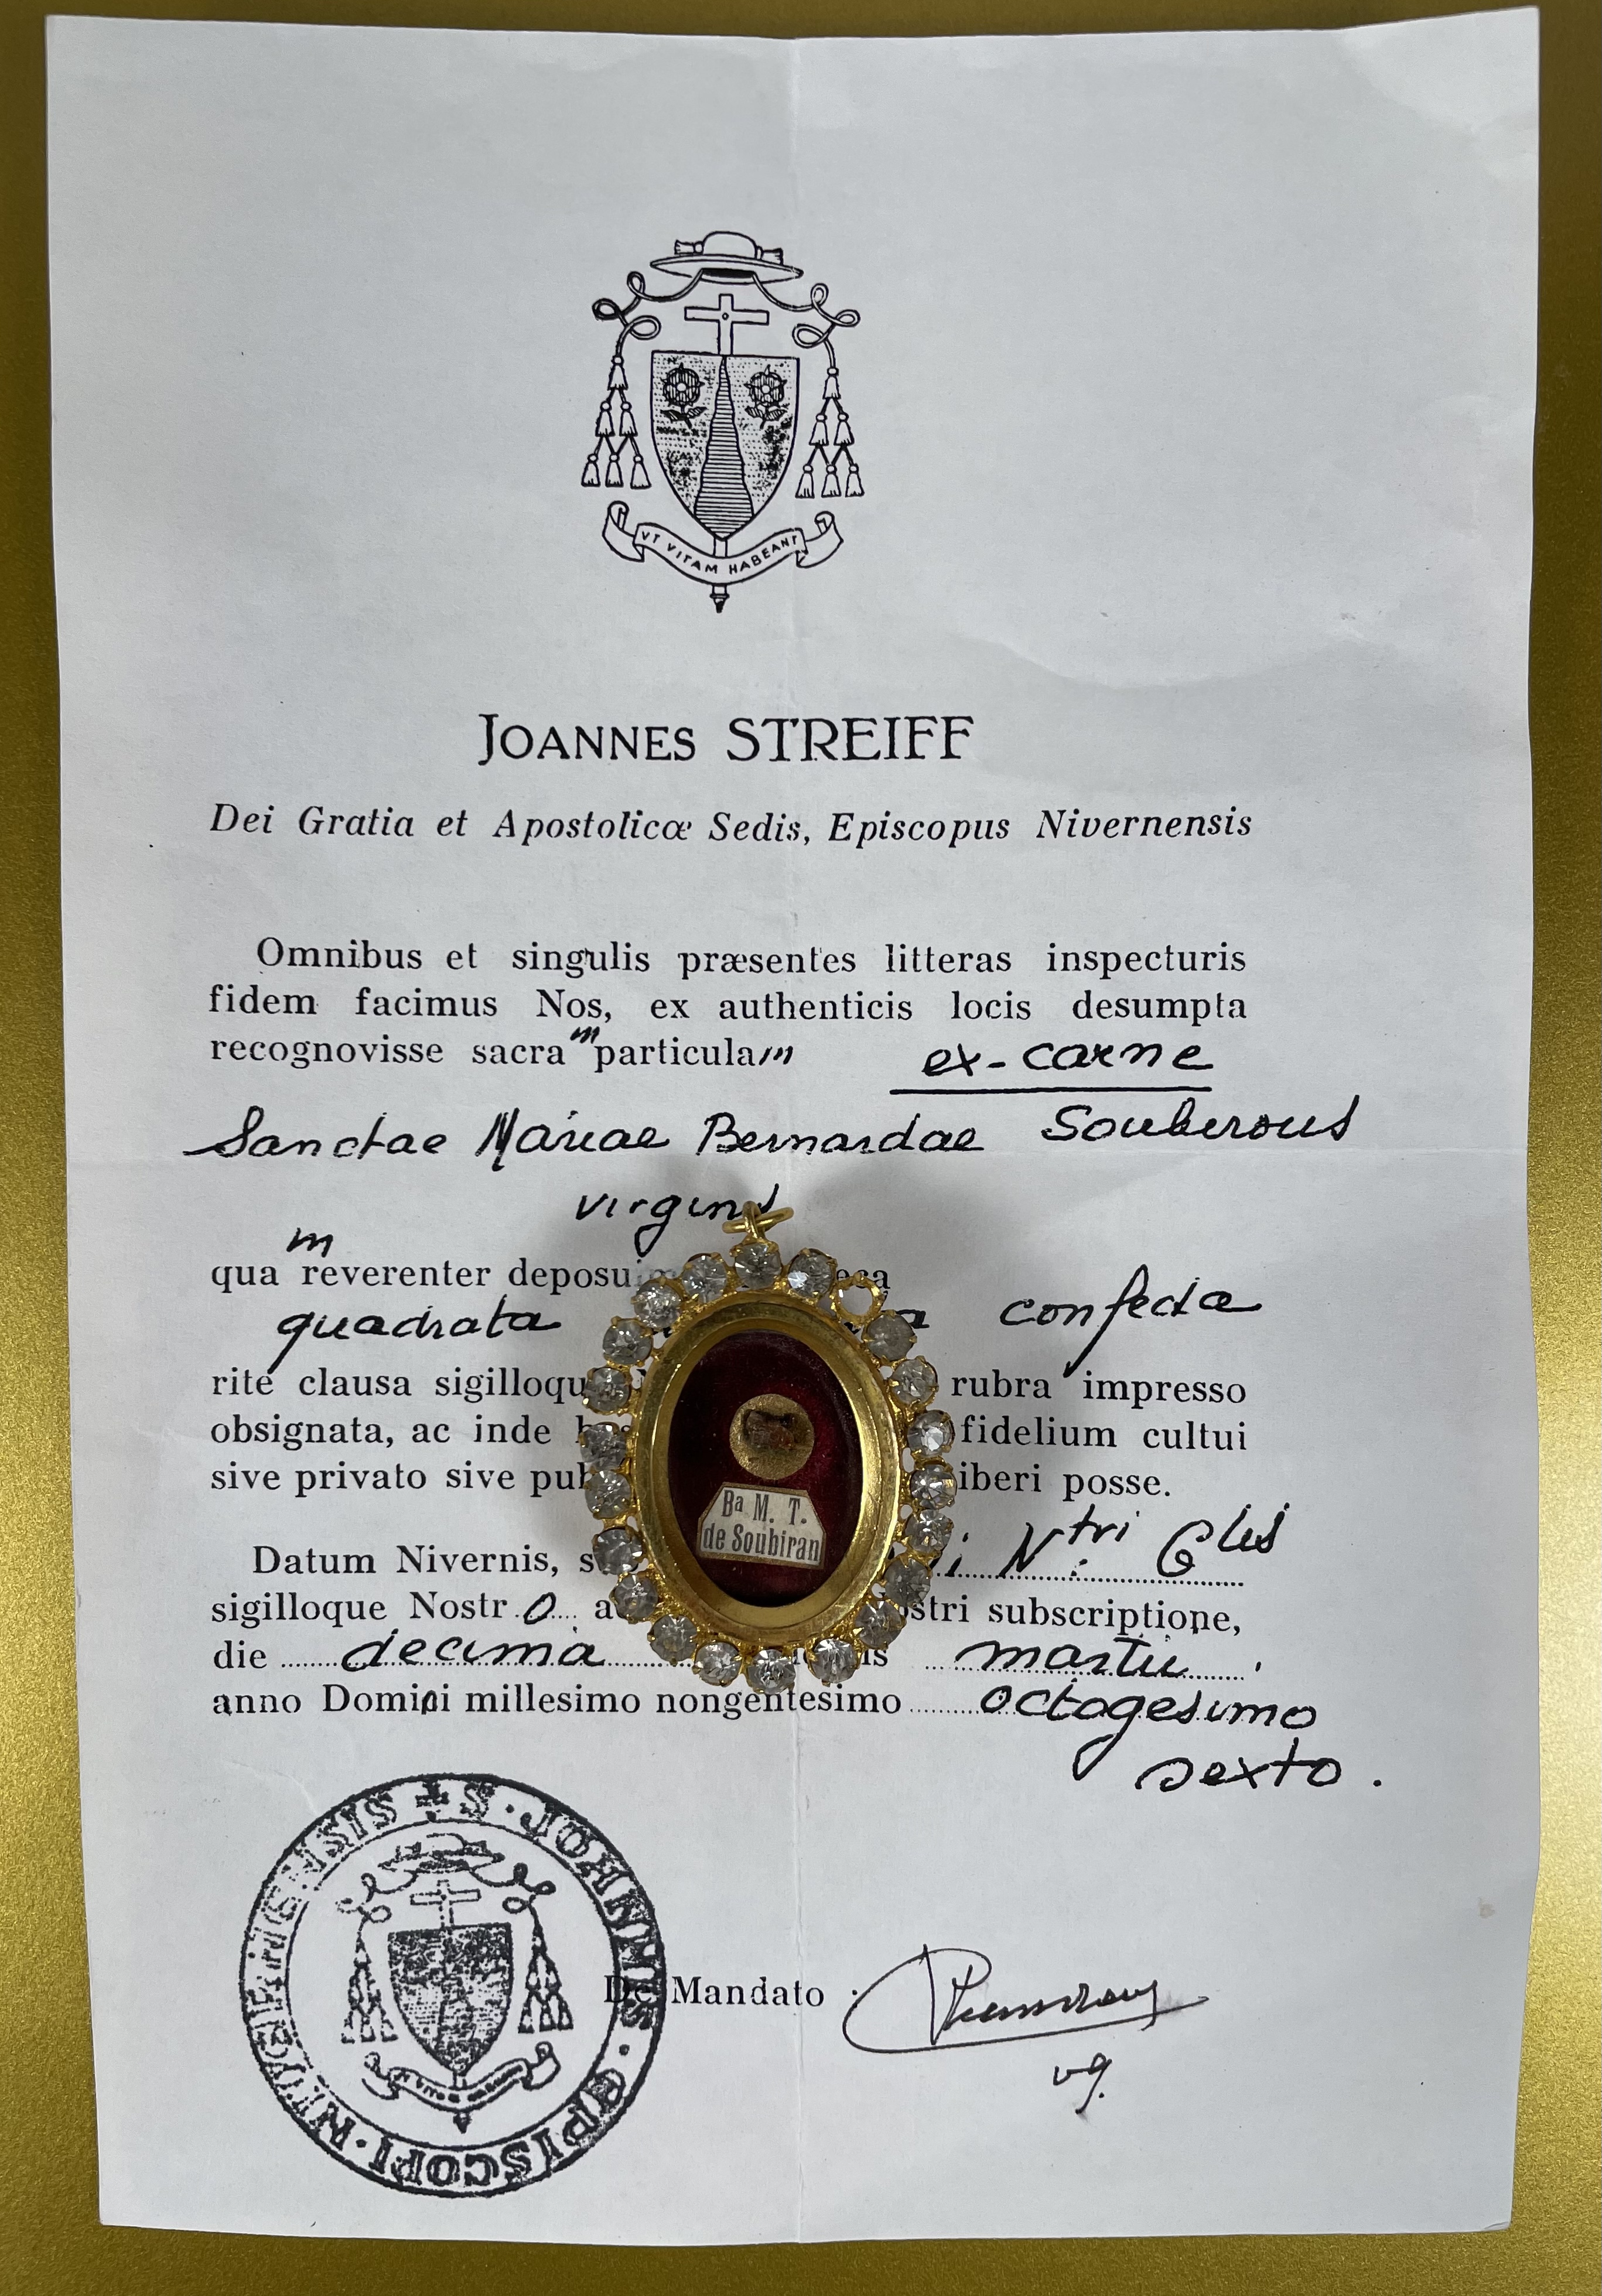 VT VITAM HABEANT
JOANNES STREIFF
Dei Gratia et Apostolicæ Sedis, Episcopus Nivernensis
Omnibus et singulis præsentes litteras inspecturis
fidem facimus Nos, ex authenticis locis desumpta
recognovisse sacram particulam ex-carne
Sanctae Mariae Bernardae Souberous
virginis
quam reverenter
quadrata confecta
rite clausa rubra impresso
obsignata, ac inde fidelium cultui
sive privato sive posse.
Ba M. T.
de Soubiran
Datum Nivernis, Ntri Glis
sigilloque Nostro subscriptione,
die decima martii
anno Domini millesimo nongentesimo octogesimo
sexto.
S. JOANNIS. EPISCOPI. NIVERNENSIS
De Mandato
vg.